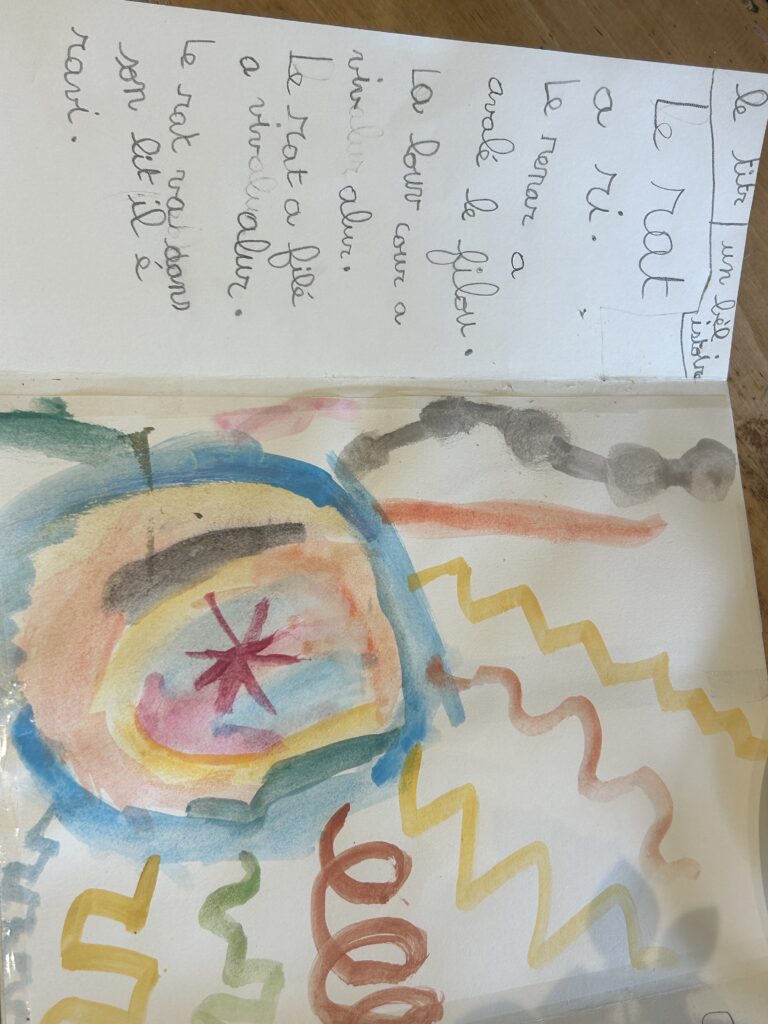 le titr un bél
istoire
Le rat
a ri.
Le renar a
avalé le filou.
La louv cour a
viv alur.
Le rat a filé
a viv alur.
Le rat va dans
son lit il é
ravi.